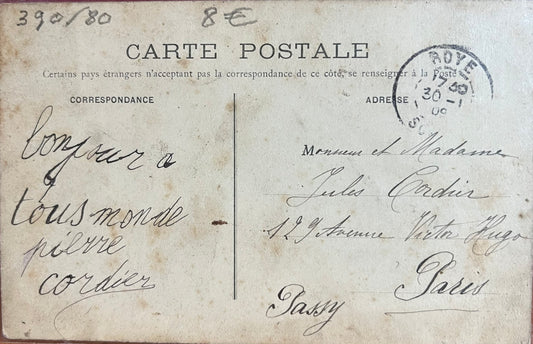 390/80
8€
CARTE POSTALE
Certains pays étrangers n'acceptant pas la correspondance de ce côté, se renseigner à la Poste
CORRESPONDANCE
ADRESSE
ROYE
17
30 -1
09
bonjour a
tous monde
pierre
cordier
Monsieur et Madame
Jules Cordier
129 Avenue Victor Hugo
Paris
Passy